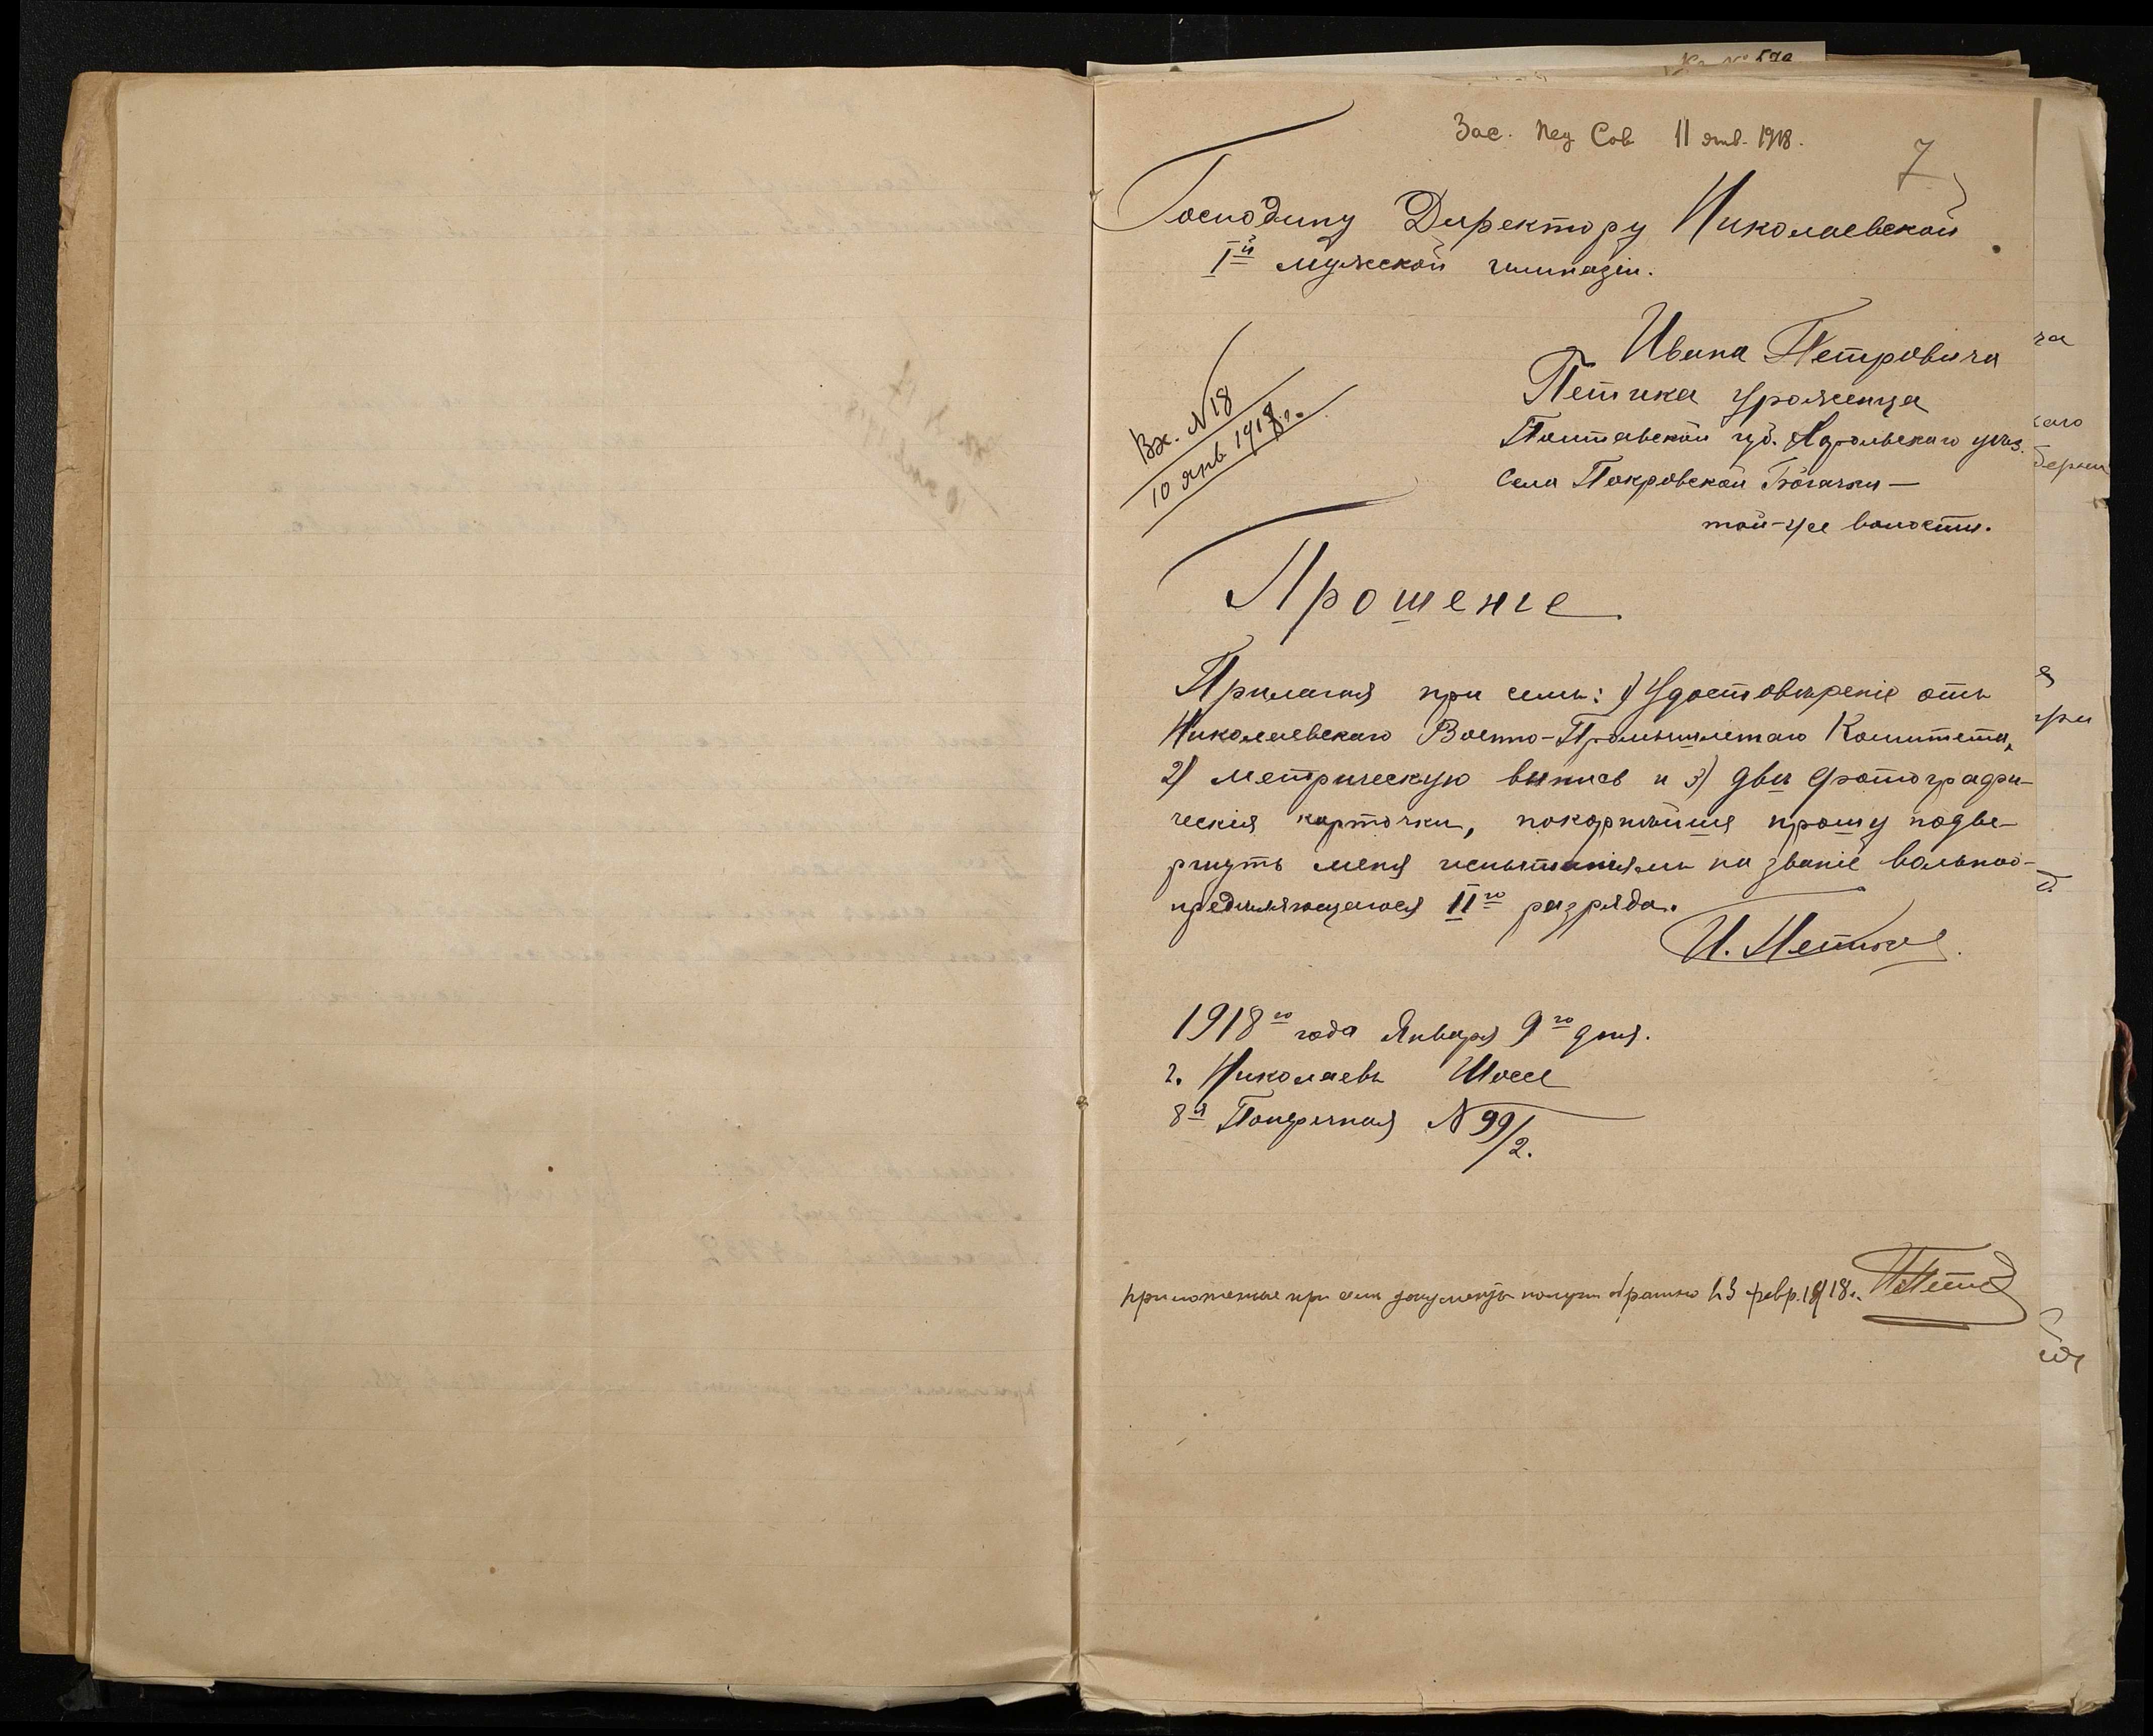 Зас. Пед Сов 11 янв. 1918.
7
Господину Директору Николаевской
I й мужской гимназіи.
Ивана Петровича
Петика уроженца
Полтавской губ. Хорольскаго уѣз.
Села Покровской Богачки —
той-же волости.
Вх. N 18
10 янв 1918 г.
Прошеніе
Прилагая при семъ: 1) Удостовѣреніе отъ
Николаевскаго Военно-Промышленнаго Комитета,
2) метрическую выпись и 3) двѣ фотографи-
ческія карточки, покорнѣйше прошу подве-
ргнуть меня испытаніямъ на званіе вольноо-
предѣляющагося II го разряда.
И. Петик
1918 го года Января 9 го дня.
г. Николаевъ Шоссе
8 я Поперечная N 99/2.
приложенные при семъ документы получ обратно 23 февр. 1918 г.